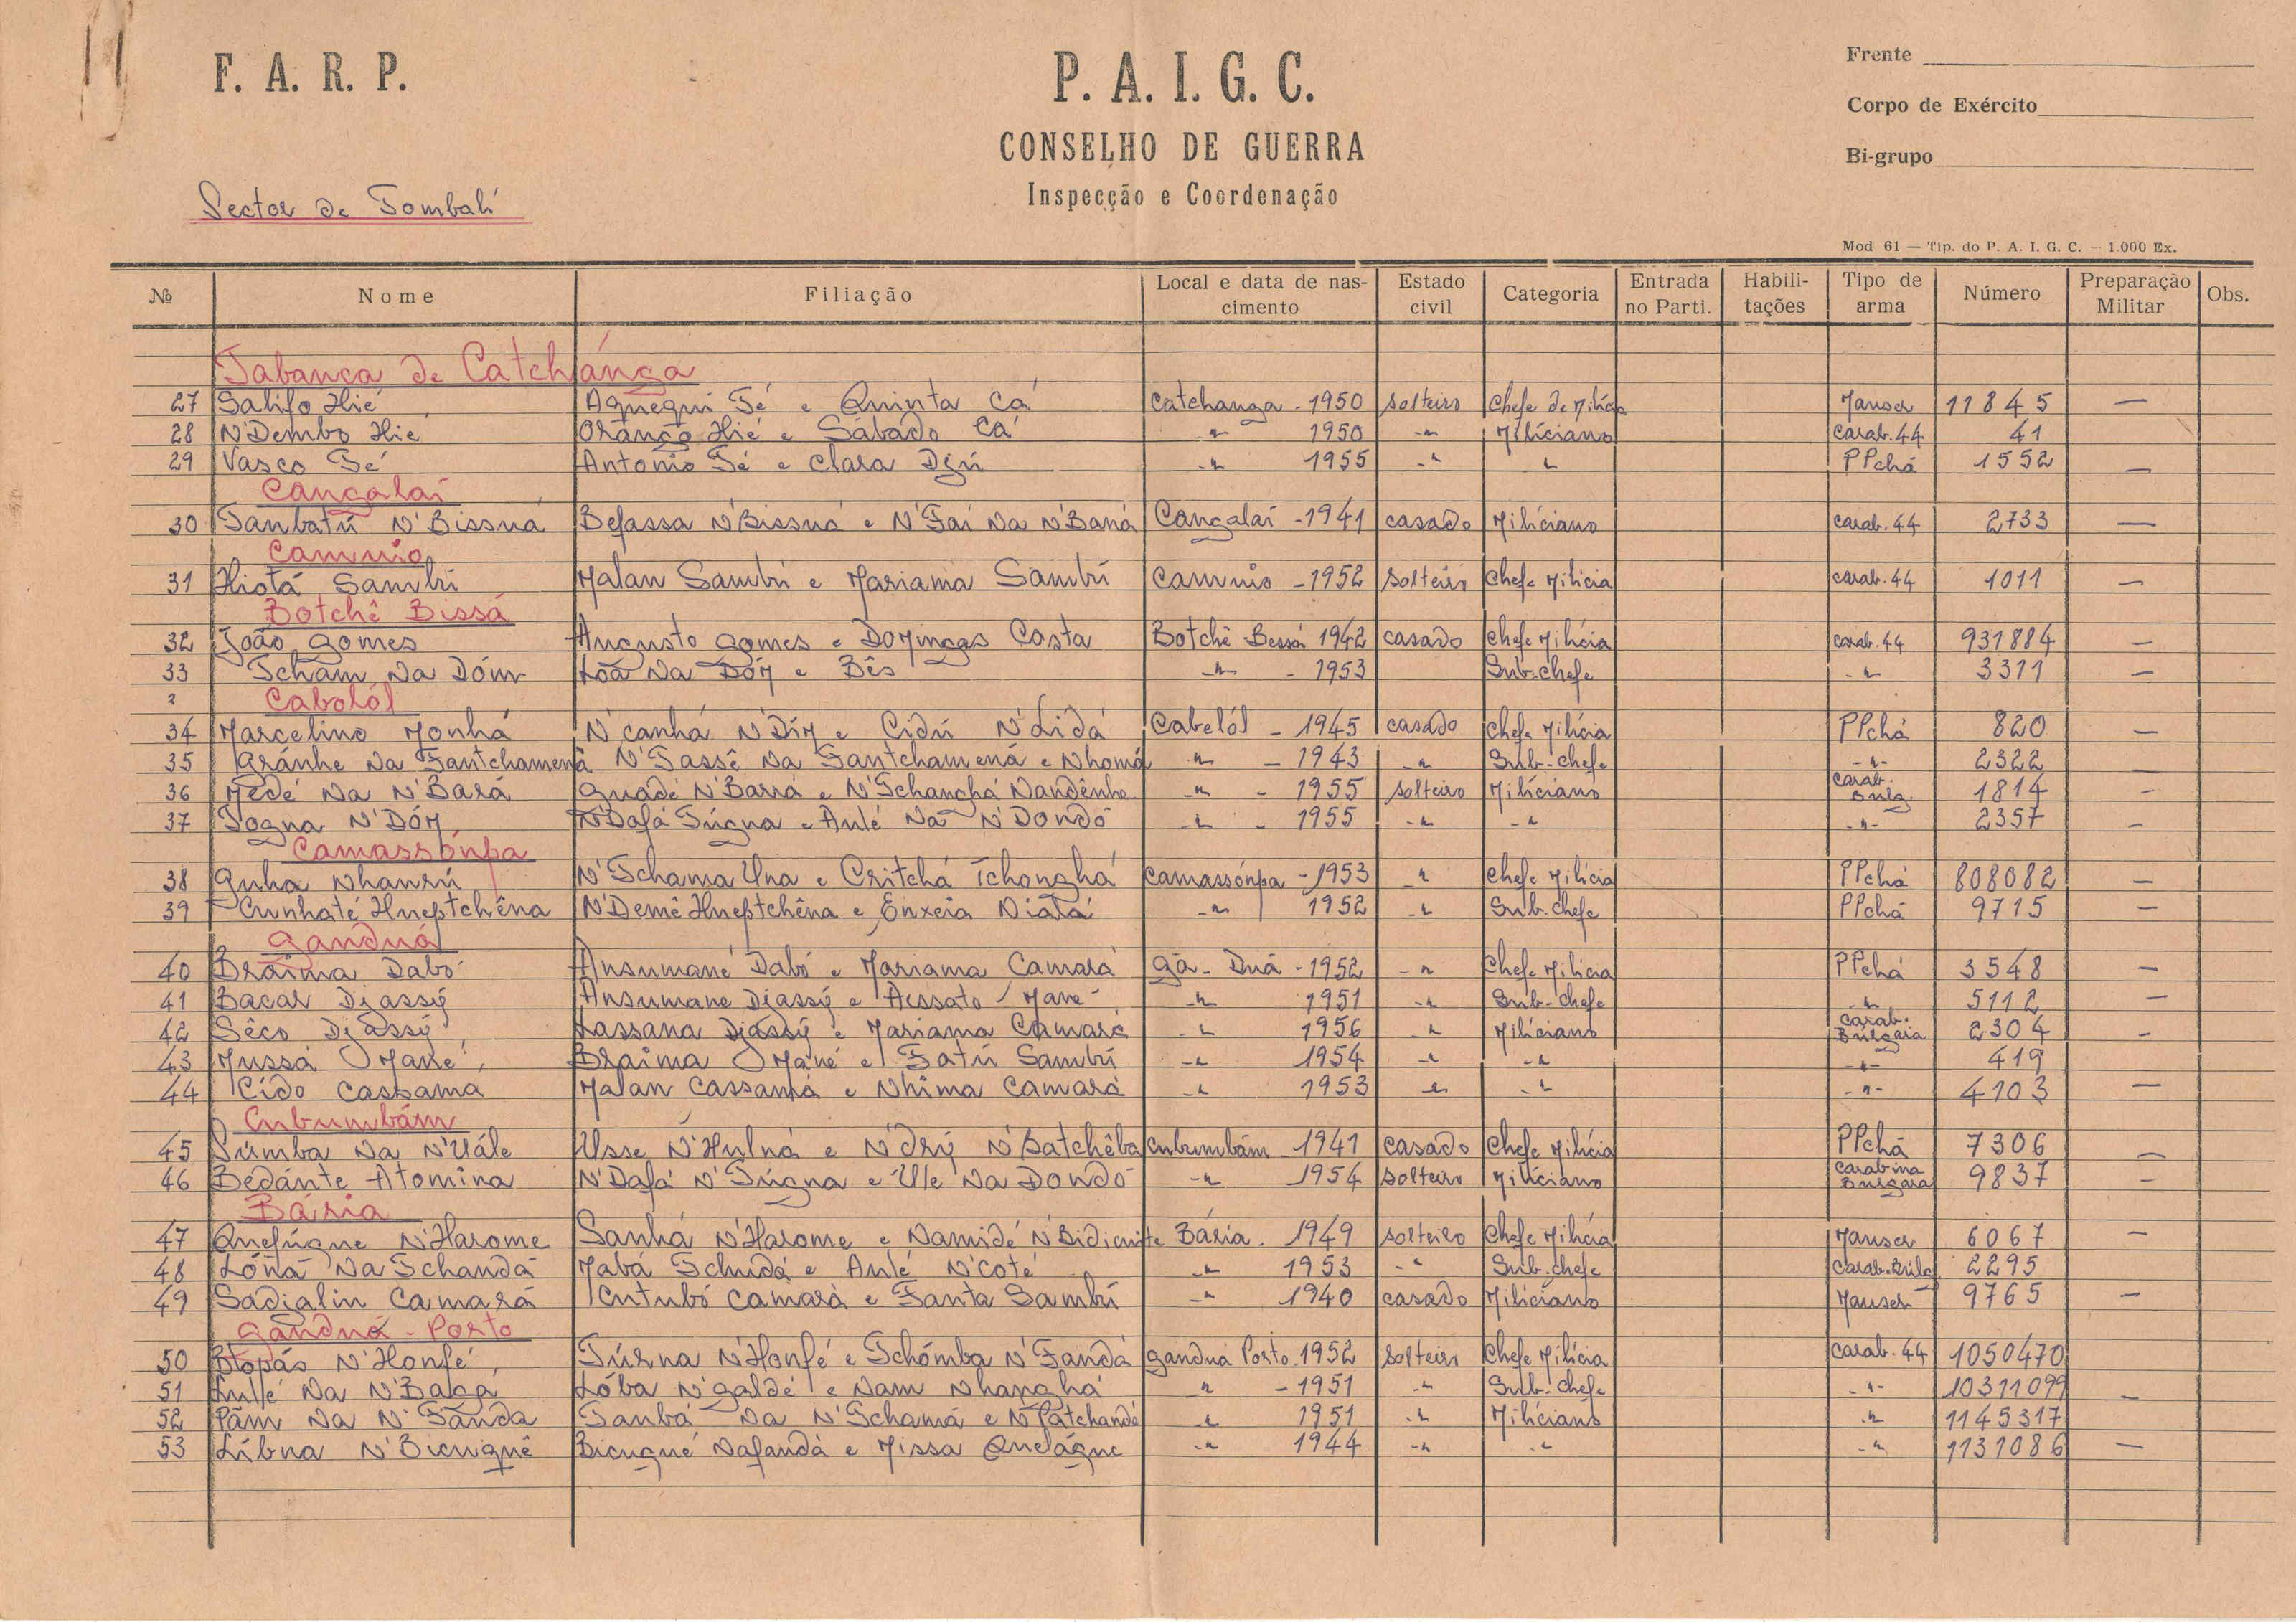 F. A. R. P.
P. A. I. G. C.
CONSELHO DE GUERRA
Inspecção e Coordenação
Frente
Corpo de Exército
Bi-grupo
Sector de Tombalí
Mod 61 — Tip. do P. A. I. G. C. — 1.000 Ex.
№ Nome Filiação Local e data de nascimento Estado civil Categoria Entrada no Parti. Habilitações Tipo de arma Número Preparação Militar Obs.
Tabanca de Catchánga
27 Salifo Hié Aguequí Té e Quinta Cá Catchanga - 1950 solteiro Chefe de Milícia Mauser 11845 —
28 N'Dembo Hié Orãnço Hié e Sábado Cá -"- 1950 -"- Miliciano Carab. 44 41
29 Vasco Té Antonio Té e Clara Djú -"- 1955 -"- " PPchá 1552 —
Cangalaí
30 Tanbatú N'Bissuá Befassa N'Bissuá e N'Faí Na N'Baná Cangalaí - 1941 casado Miliciano carab. 44 2733 —
Camuio
31 Hiotá Sambú Malan Sambú e Mariama Sambú Camuio - 1952 solteiro Chefe Milícia carab. 44 1011 —
Botchê Bissá
32 João Gomes Augusto Gomes e Domingas Costa Botchê Bessá 1942 casado Chefe Milícia carab. 44 931884 —
33 Tcham Na Dóm Loã Na Dóm e Bês -"- - 1953 Sub-chefe -"- 3311 —
Cabolól
34 Marcelino Monhá N'canhá N'Dím e Cidú N'Lidá Cabelól - 1945 casado Chefe Milícia PPchá 820 —
35 Gránhe Na Tantchamená N'Tassê Na Tantchamená e Nhomá -"- - 1943 -"- Sub-chefe -"- 2322 —
36 Médé Na N'Bará Guadé N'Bará e N'Tchanghá Nandênhe -"- - 1955 solteiro Miliciano Carab. Bulg. 1814 —
37 Togna N'Dóm N'Dafá Túgna e Aulé Na N'Dondó -"- - 1955 -"- -"- -"- 2357 —
Camassónpa
38 Guha Nhanrú N'Tchama Una e Critchá Tchonghá Camassónpa - 1953 -"- Chefe Milícia PPchá 808082 —
39 Cunhaté Hueptchêna N'Demê Hueptchêna e Enxeia Niatá -"- 1952 -"- Sub-chefe PPchá 9715 —
Ganduá
40 Braima Dabó Ansumané Dabó e Mariama Camará Gã-Duá - 1952 -"- Chefe Milícia PPchá 3548 —
41 Bacar Djassy Ansumane Djassy e Aissato Mané -"- 1951 -"- Sub-chefe -"- 5112 —
42 Sêco Djassy Lassana Djassy e Mariama Camará -"- 1956 -"- Miliciano Carab. Búlgara 2304 —
43 Mussá Mané Braima Mané e Fatú Sambú -"- 1954 -"- -"- -"- 419
44 Cído Cassama Malan Cassamá e Nhima Camará -"- 1953 -"- -"- -"- 4103 —
Cubumbám
45 Súmba Na N'Uále Usse N'Hulná e N'dry N'Batchêba Cubumbám 1941 casado Chefe Milícia PPchá 7306 —
46 Bedánte Atomina N'Dafá N'Túgna e Úle Na Dondó -"- 1954 solteiro Miliciano carabina Bulgara 9837 —
Bária
47 Quefúgue N'Harome Sanhá N'Harome e Namidé Bária - 1949 solteiro Chefe Milícia Mauser 6067 —
48 Lóná Na Tchandá Mabá Tchudá e Aulé N'Coté -"- 1953 -"- Sub-chefe 2295
49 Sadjalin Camará Cutubó Camará e Fanta Sambú -"- 1940 casado Miliciano Mauser 9765 —
Ganduá-Porto
50 Btopás N'Honfé Túrna N'Honfé e Tchómba N'Fandá Ganduá Porto 1952 solteiro Chefe Milícia carab. 44 1050470
51 Lulé Na N'Bagá Lóba N'galdé e Nam Nhanghá -"- - 1951 -"- Sub-chefe -"- 10311099 —
52 Pãm Na N'Fanda Tanbá Na N'Tchamá e N'Patchandé -"- 1951 -"- Miliciano -"- 1145317
53 Líbna N'Bicuquê Bicugué Nafandá e Missa Quelágue -"- 1944 -"- -"- -"- 1131086 —